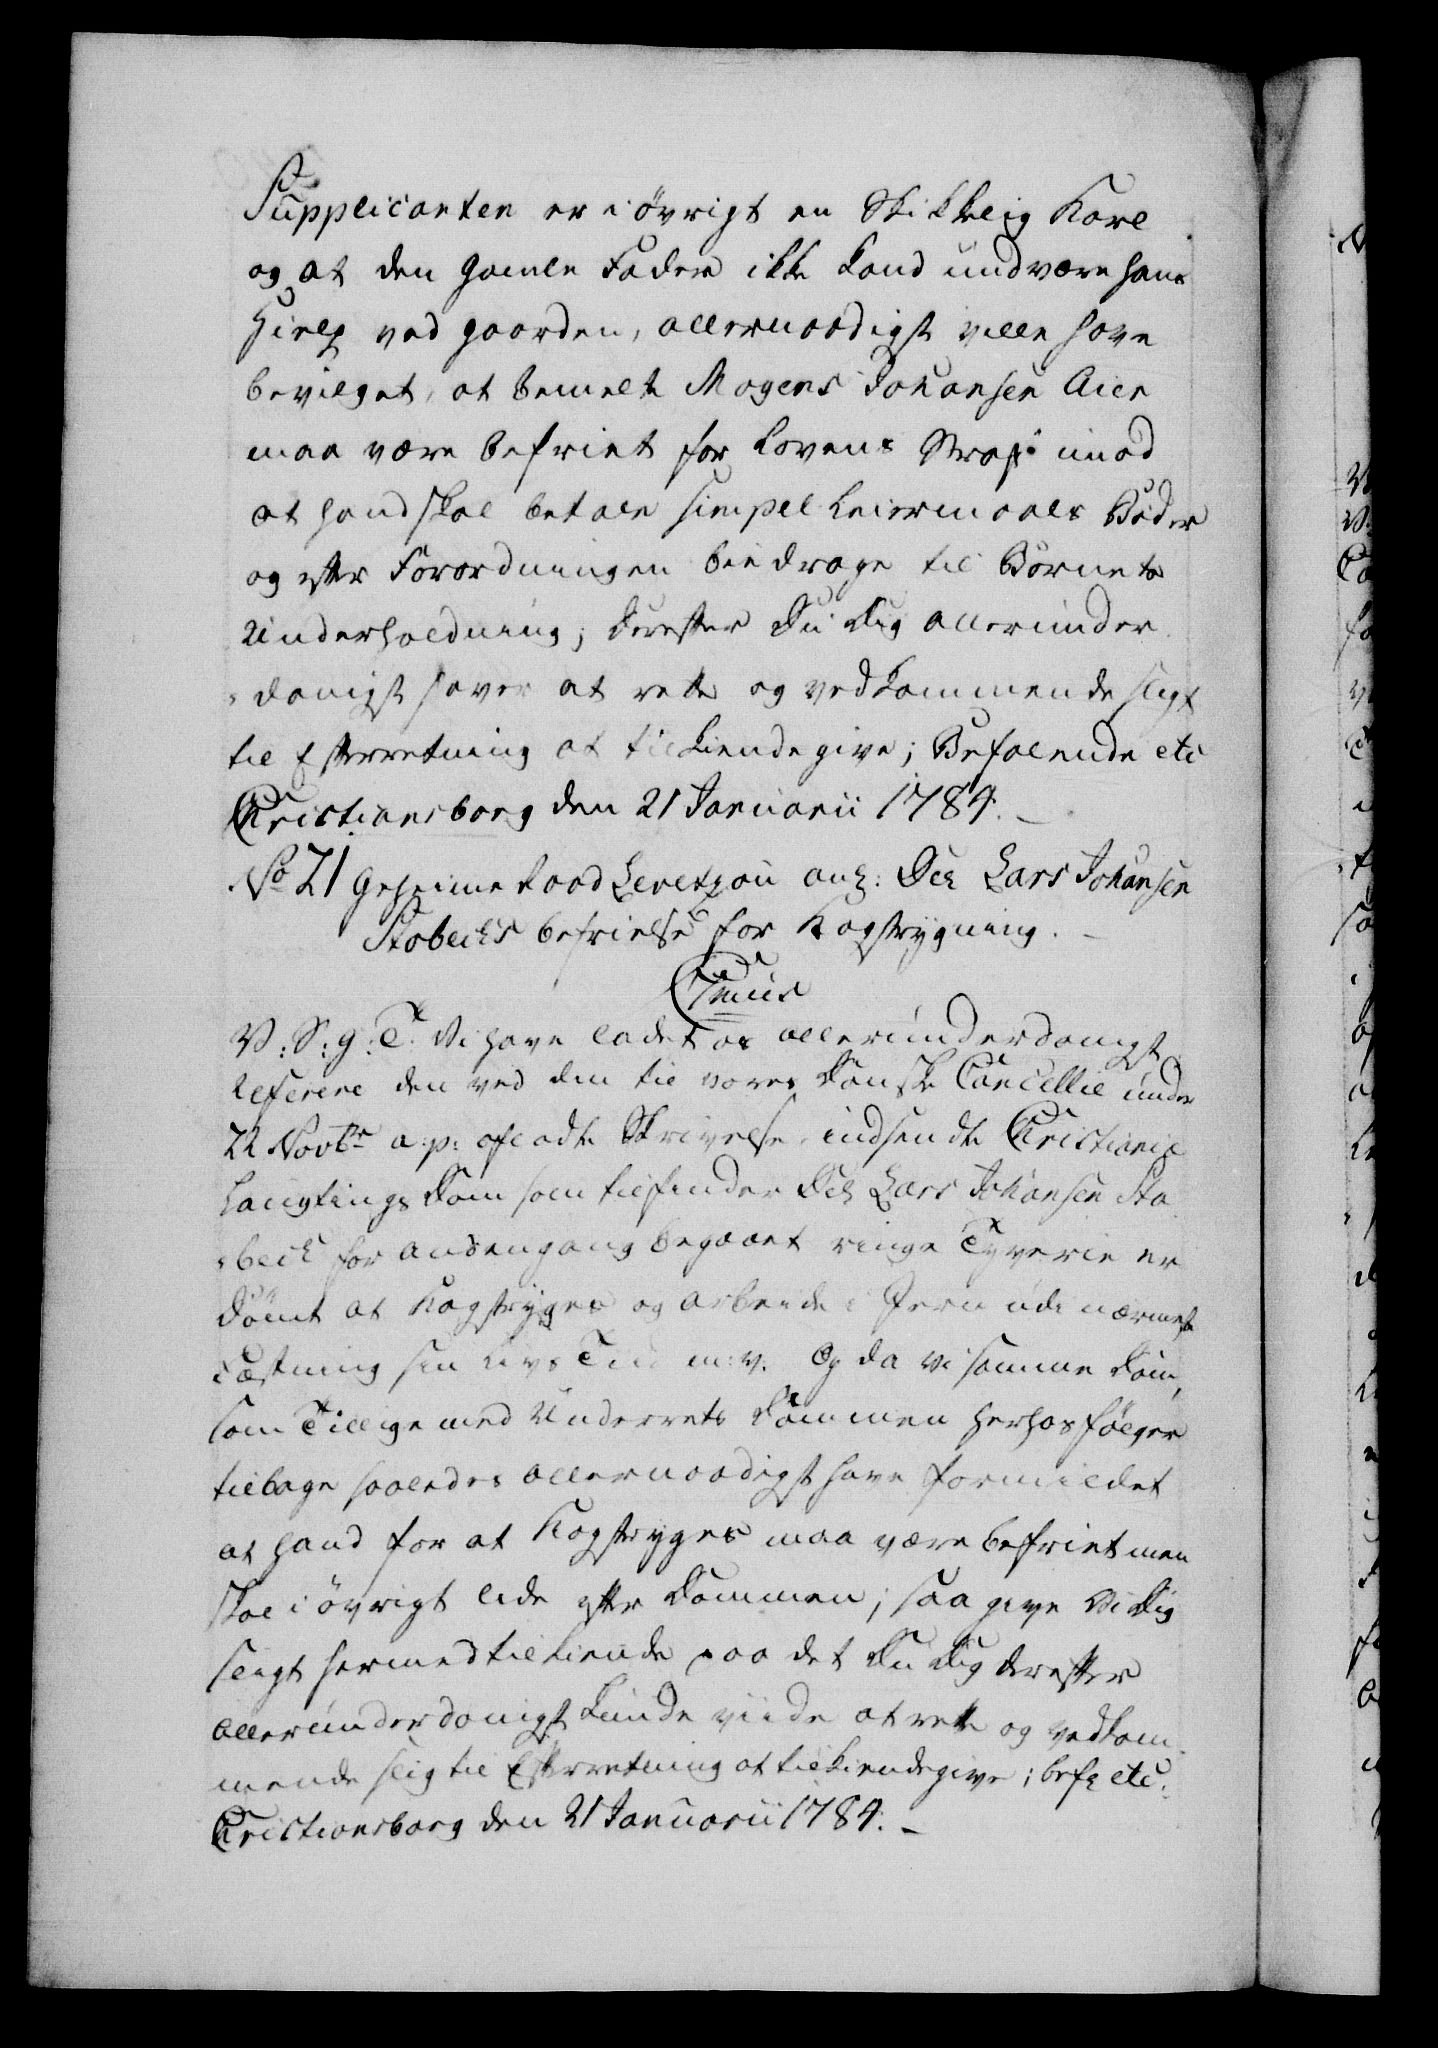 Supplicanten er i øvrigt en Skikkelig Karl
og at den gamle Fader ikke kand undvære hans
Hielp ved gaarden, allernaadigst ville have
bevilget, at bemelte Mogens Johansen Aien
maa være befriet for Lovens Straf imod
at hand skal betale simpel Leiermaals Bøder
og efter Forordningen biedrage til Børnets
Underholdning; derefter Du Dig allerunder
-danigst haver at rette og vedkommende sligt
til Efterretning at tilkiendegive; Befalende etc
Christiansborg den 21 Januarii 1784. -
No 21 Geheimeraad Levetzau anl: Del Lars Johansen
Stabecks befrielse for Kagstrygning. -
C7mus
V: S: g: T. Vi have ladet os allerunderdanigst
referere den ved din til vores Danske Cancellie under
22 Novbr a: p: afladte Skrivelse indsendte Christiania
Laugtings Dom som tilfinder Del Lars Johansen Sta
-beck for anden gang begaaet ringe Tyverie er
dømt at Kagstryges og arbeide i Jern udi nærmeste
Fæstning sin Livs Tiid m: v. Og da vi samme Dom,
som Tillige med Underrets Dommen herhos følger
tilbage saaledes allernaadigst have formildet
at hand for at Kagstryges maa være befriet men
skal i øvrigt lide efter Dommen; saa give Vi Dig
sligt hermed tilkiende paa det Du Dig derefter
allerunderdanigst kunde viide at rette og vedkom
mende slig til Efterretning at tilkiendegive; befl etc.
Christiansborg den 21 Januarii 1784. -